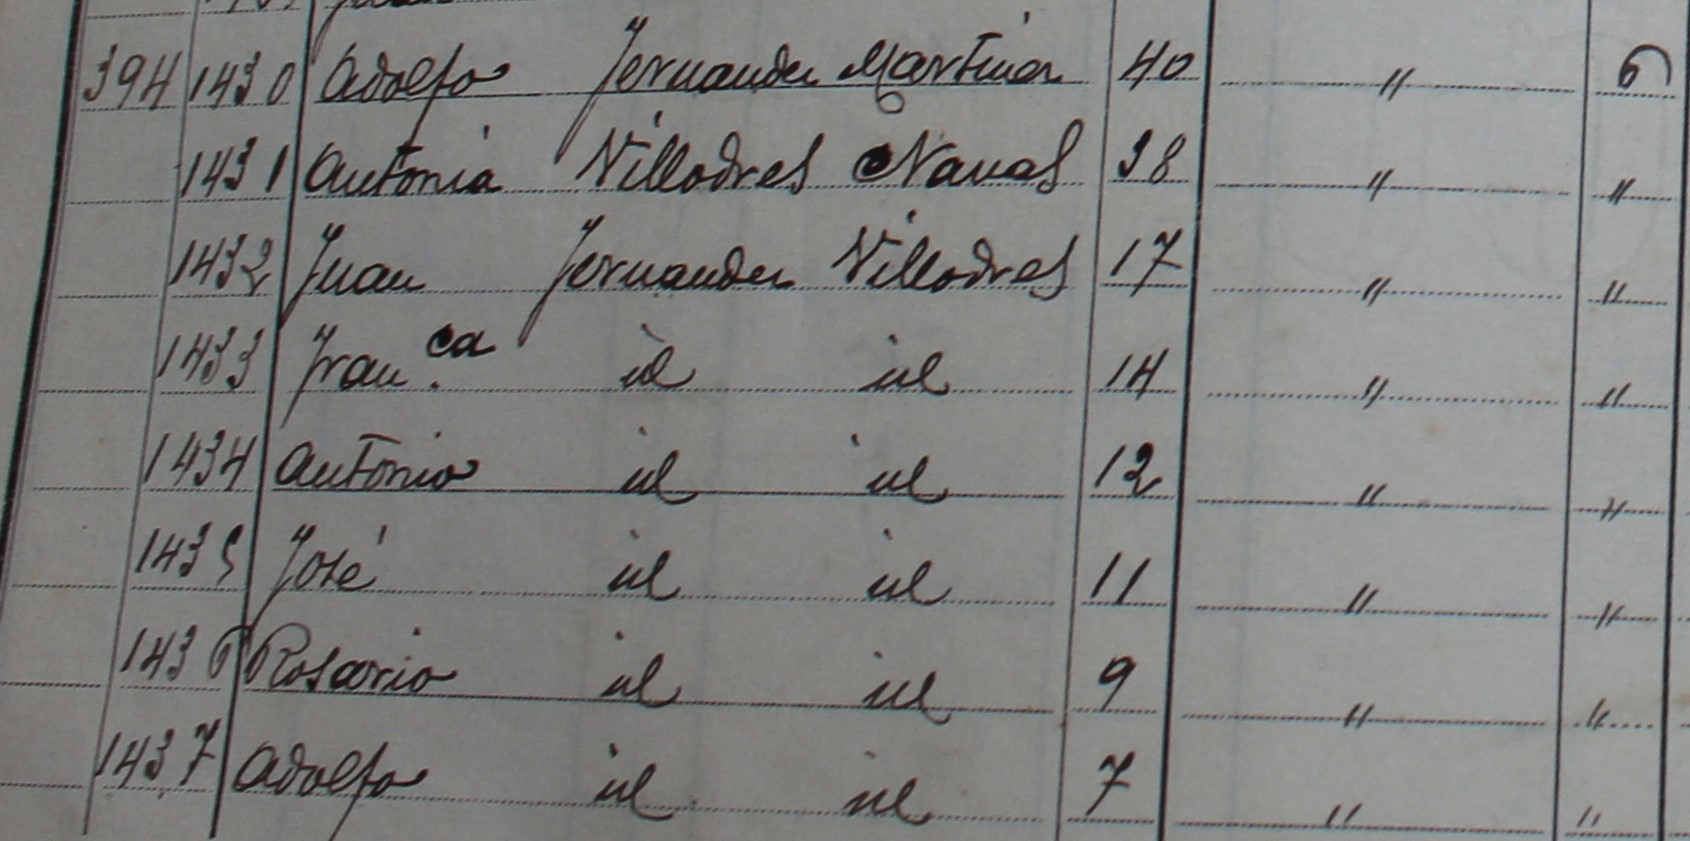 394 1430 Adolfo Fernandez Martinez 40 " 6
1431 Antonia Villodres Navas 38 " "
1432 Juan Fernandez Villodres 17 " "
1433 Fran.ca id id 14 " "
1434 Antonio id id 12 " "
1435 José id id 11 " "
1436 Rosario id id 9 " "
1437 Adolfo id id 7 " "